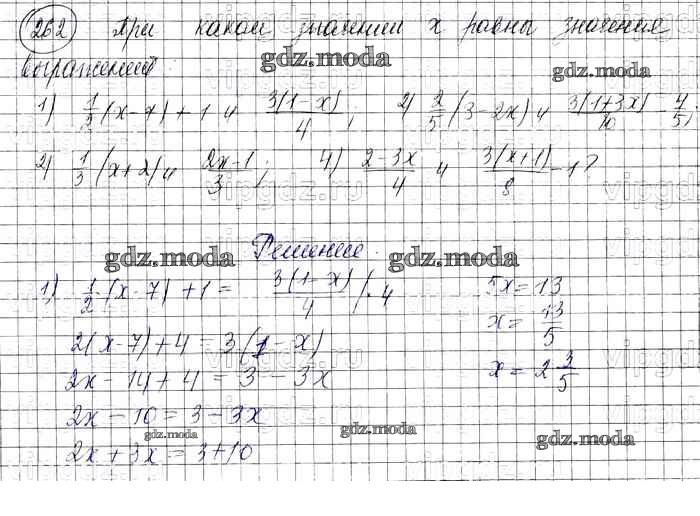 262 При каком значении x равны значения
выражений
1) 1/2 (x-7)+1 и 3(1-x)/4; 2) 2/5 (3-2x) и 3(1+3x)/10 - 4/5;
2) 1/3 (x+2) и 2x-1/3; 4) 2-3x/4 и 3(x+1)/8 - 1?
Решение.
1) 1/2 (x-7)+1 = 3(1-x)/4 /·4 5x=13
2(x-7)+4=3(1-x) x=13/5
2x-14+4=3-3x x=2 3/5
2x-10=3-3x
2x+3x=3+10
gdz.moda
gdz.moda
gdz.moda
gdz.moda
gdz.moda
gdz.moda
gdz.moda
vipgdz.ru
vipgdz.ru
vipgdz.ru
vipgdz.ru